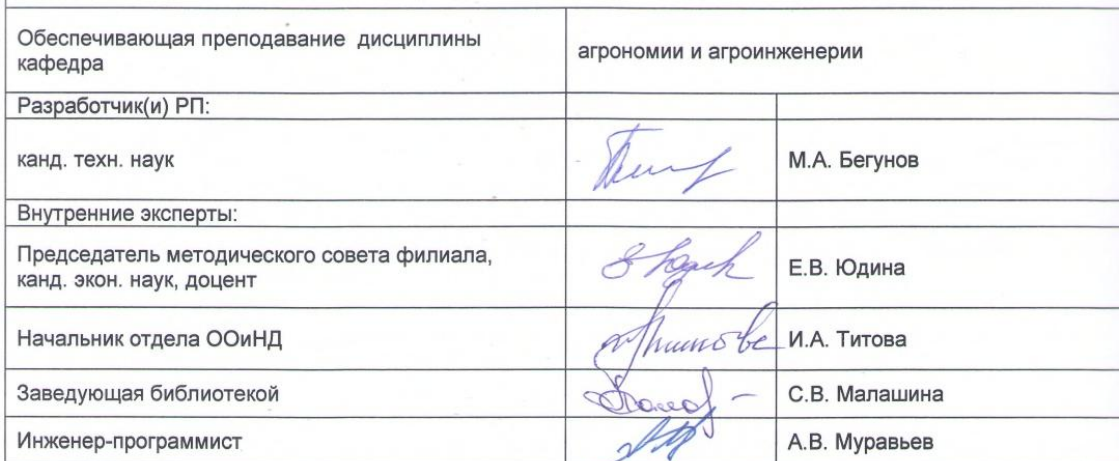 Обеспечивающая преподавание дисциплины
кафедра
агрономии и агроинженерии
Разработчик(и) РП:
канд. техн. наук
М.А. Бегунов
Внутренние эксперты:
Председатель методического совета филиала,
канд. экон. наук, доцент
Е.В. Юдина
Начальник отдела ООиНД
И.А. Титова
Заведующая библиотекой
С.В. Малашина
Инженер-программист
А.В. Муравьев